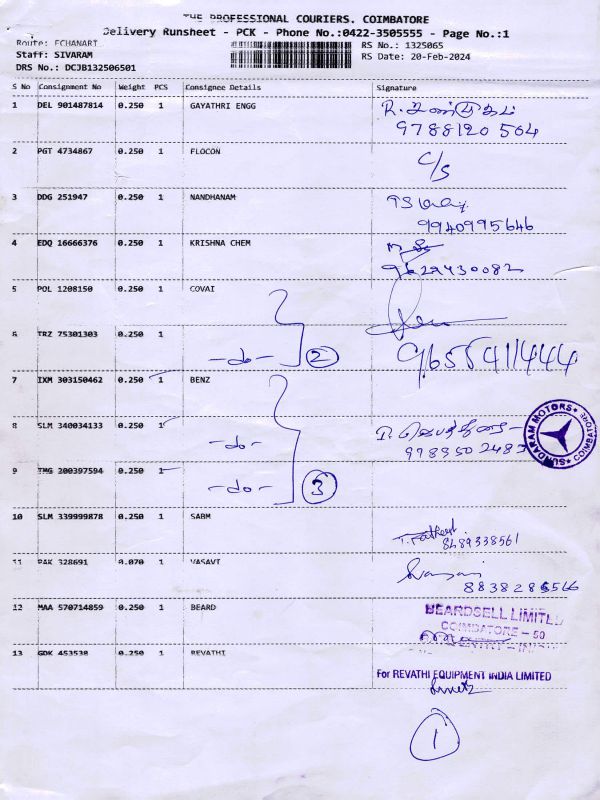 THE PROFESSIONAL COURIERS. COIMBATORE
Delivery Runsheet - PCK - Phone No.:0422-3505555 - Page No.:1
Route: ECHANARI
Staff: SIVARAM
DRS No.: DCJB132506501
RS No.: 1325065
RS Date: 20-Feb-2024
S No Consignment No Weight PCS Consignee Details Signature
1 DEL 901487814 0.250 1 GAYATHRI ENGG
9788120 504
2 PGT 4734867 0.250 1 FLOCON C/S
3 DDG 251947 0.250 1 NANDHANAM
9940995646
4 EDQ 16666376 0.250 1 KRISHNA CHEM
9629430082
5 POL 1208150 0.250 1 COVAI
6 TRZ 75301303 0.250 1 -do- 2 9655411444
7 IXM 303150462 0.250 1 BENZ
8 SLM 340034133 0.250 1 -do-
978950248
SUNDARAM MOTORS COIMBATORE
9 TMG 200397594 0.250 1 -do- 3
10 SLM 339999878 0.250 1 SABM
8489338561
11 PAK 328691 0.070 1 VASAVI
12 MAA 570714859 0.250 1 BEARD
BEARDSELL LIMITED
COIMBATORE - 50
13 GDK 453538 0.250 1 REVATHI
For REVATHI EQUIPMENT INDIA LIMITED
1